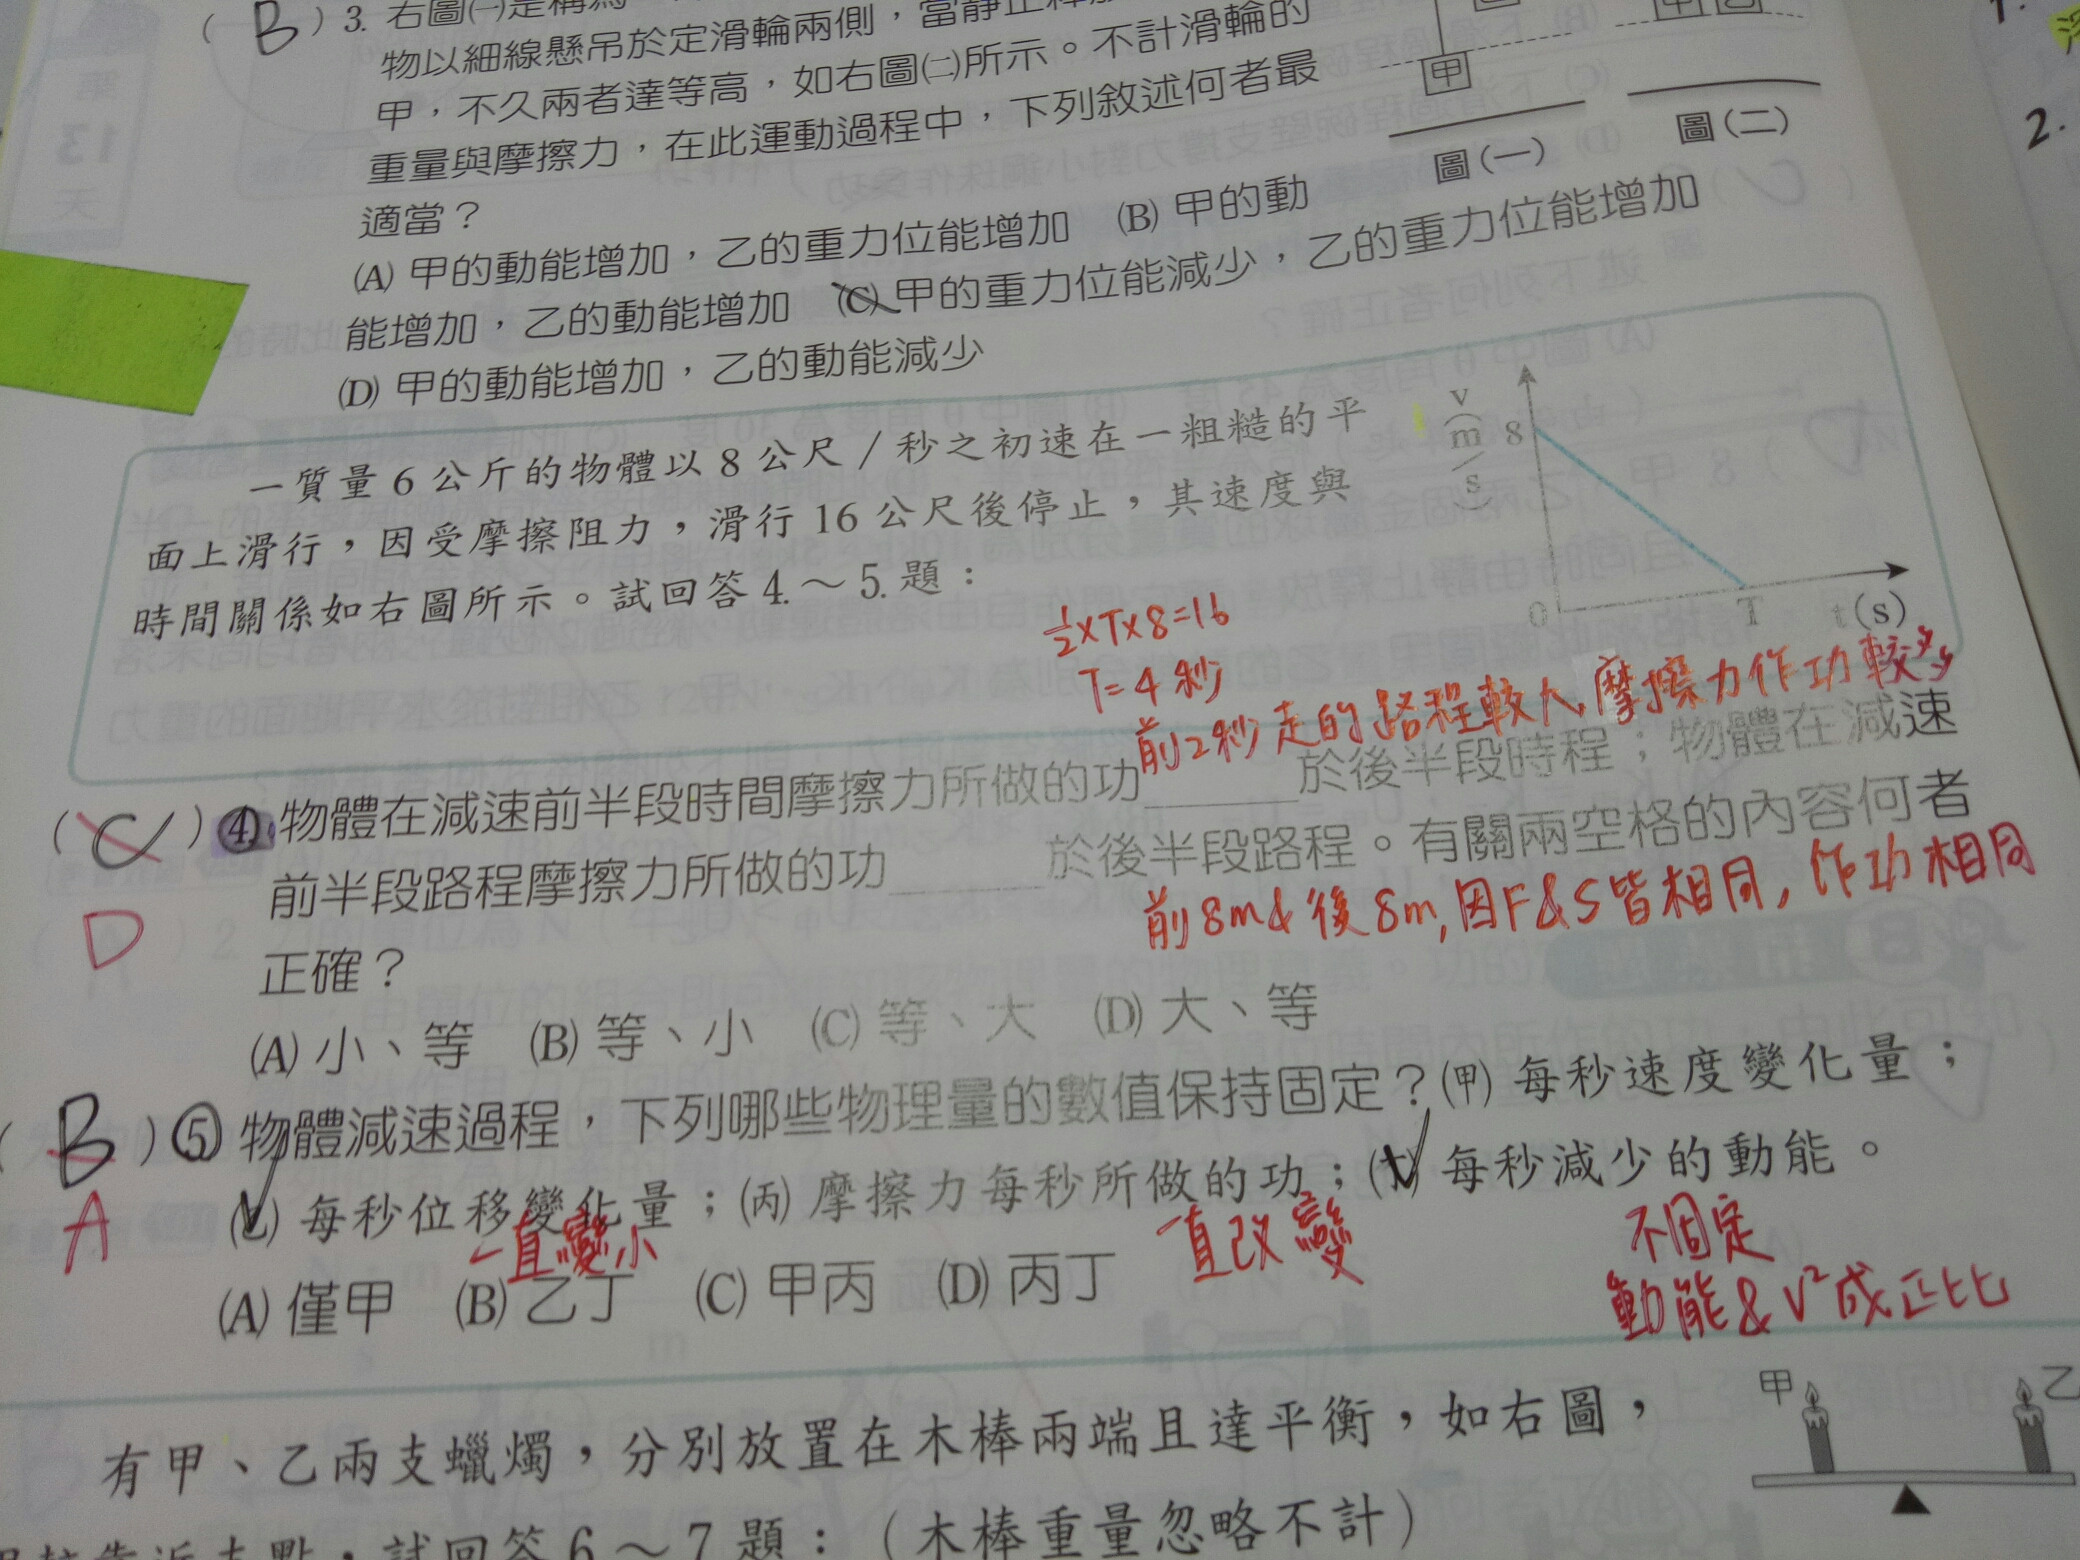 ( B ) 3. 右圖㈠是
物以細線懸吊於定滑輪兩側，當靜止釋
甲，不久兩者達等高，如右圖㈡所示。不計滑輪的
重量與摩擦力，在此運動過程中，下列敘述何者最
適當？
甲
甲乙
圖(一)
圖(二)
(A) 甲的動能增加，乙的重力位能增加 (B) 甲的動
能增加，乙的動能增加 (C) 甲的重力位能減少，乙的重力位能增加
(D) 甲的動能增加，乙的動能減少
一質量 6 公斤的物體以 8 公尺／秒之初速在一粗糙的平
面上滑行，因受摩擦阻力，滑行 16 公尺後停止，其速度與
時間關係如右圖所示。試回答 4.～5. 題：
v(m/s)
8
0 T t(s)
½×T×8=16
T=4秒
前2秒走的路程較大,摩擦力作功較多
( C ) 4. 物體在減速前半段時間摩擦力所做的功______於後半段時程；物體在減速
D
前半段路程摩擦力所做的功______於後半段路程。有關兩空格的內容何者
前8m&後8m,因F&S皆相同,作功相同
正確？
(A) 小、等 (B) 等、小 (C) 等、大 (D) 大、等
( B ) 5. 物體減速過程，下列哪些物理量的數值保持固定？(甲) 每秒速度變化量；
A
(乙) 每秒位移變化量；(丙) 摩擦力每秒所做的功；(丁) 每秒減少的動能。
一直變小
一直改變
不固定
動能&V²成正比
(A) 僅甲 (B) 乙丁 (C) 甲丙 (D) 丙丁
甲 乙
有甲、乙兩支蠟燭，分別放置在木棒兩端且達平衡，如右圖，
支點，試回答 6～7 題：（木棒重量忽略不計）
第
13
天
1.
2.